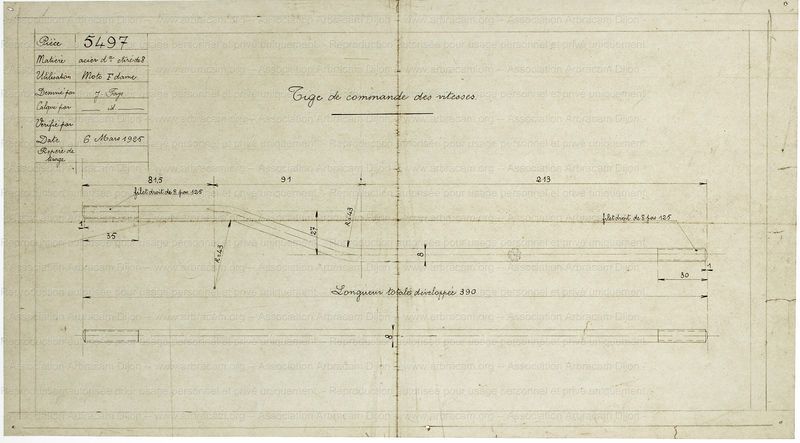 Pièce 5497
Matière acier dx étiré de 8
Utilisation Moto F dame
Dessiné par J. Fays
Calqué par d°
Vérifié par
Date 6 Mars 1925
Repère de
tirage
Tige de commande des vitesses.
81,5 91 213
filet droit de 8 pas 125
filet droit de 8 pas 125
1
35
R=43
27
R=43
8
1
30
Longueur totale développée 390
8
www.arbracam.org – Association Arbracam Dijon – Reproduction autorisée pour usage personnel et privé uniquement